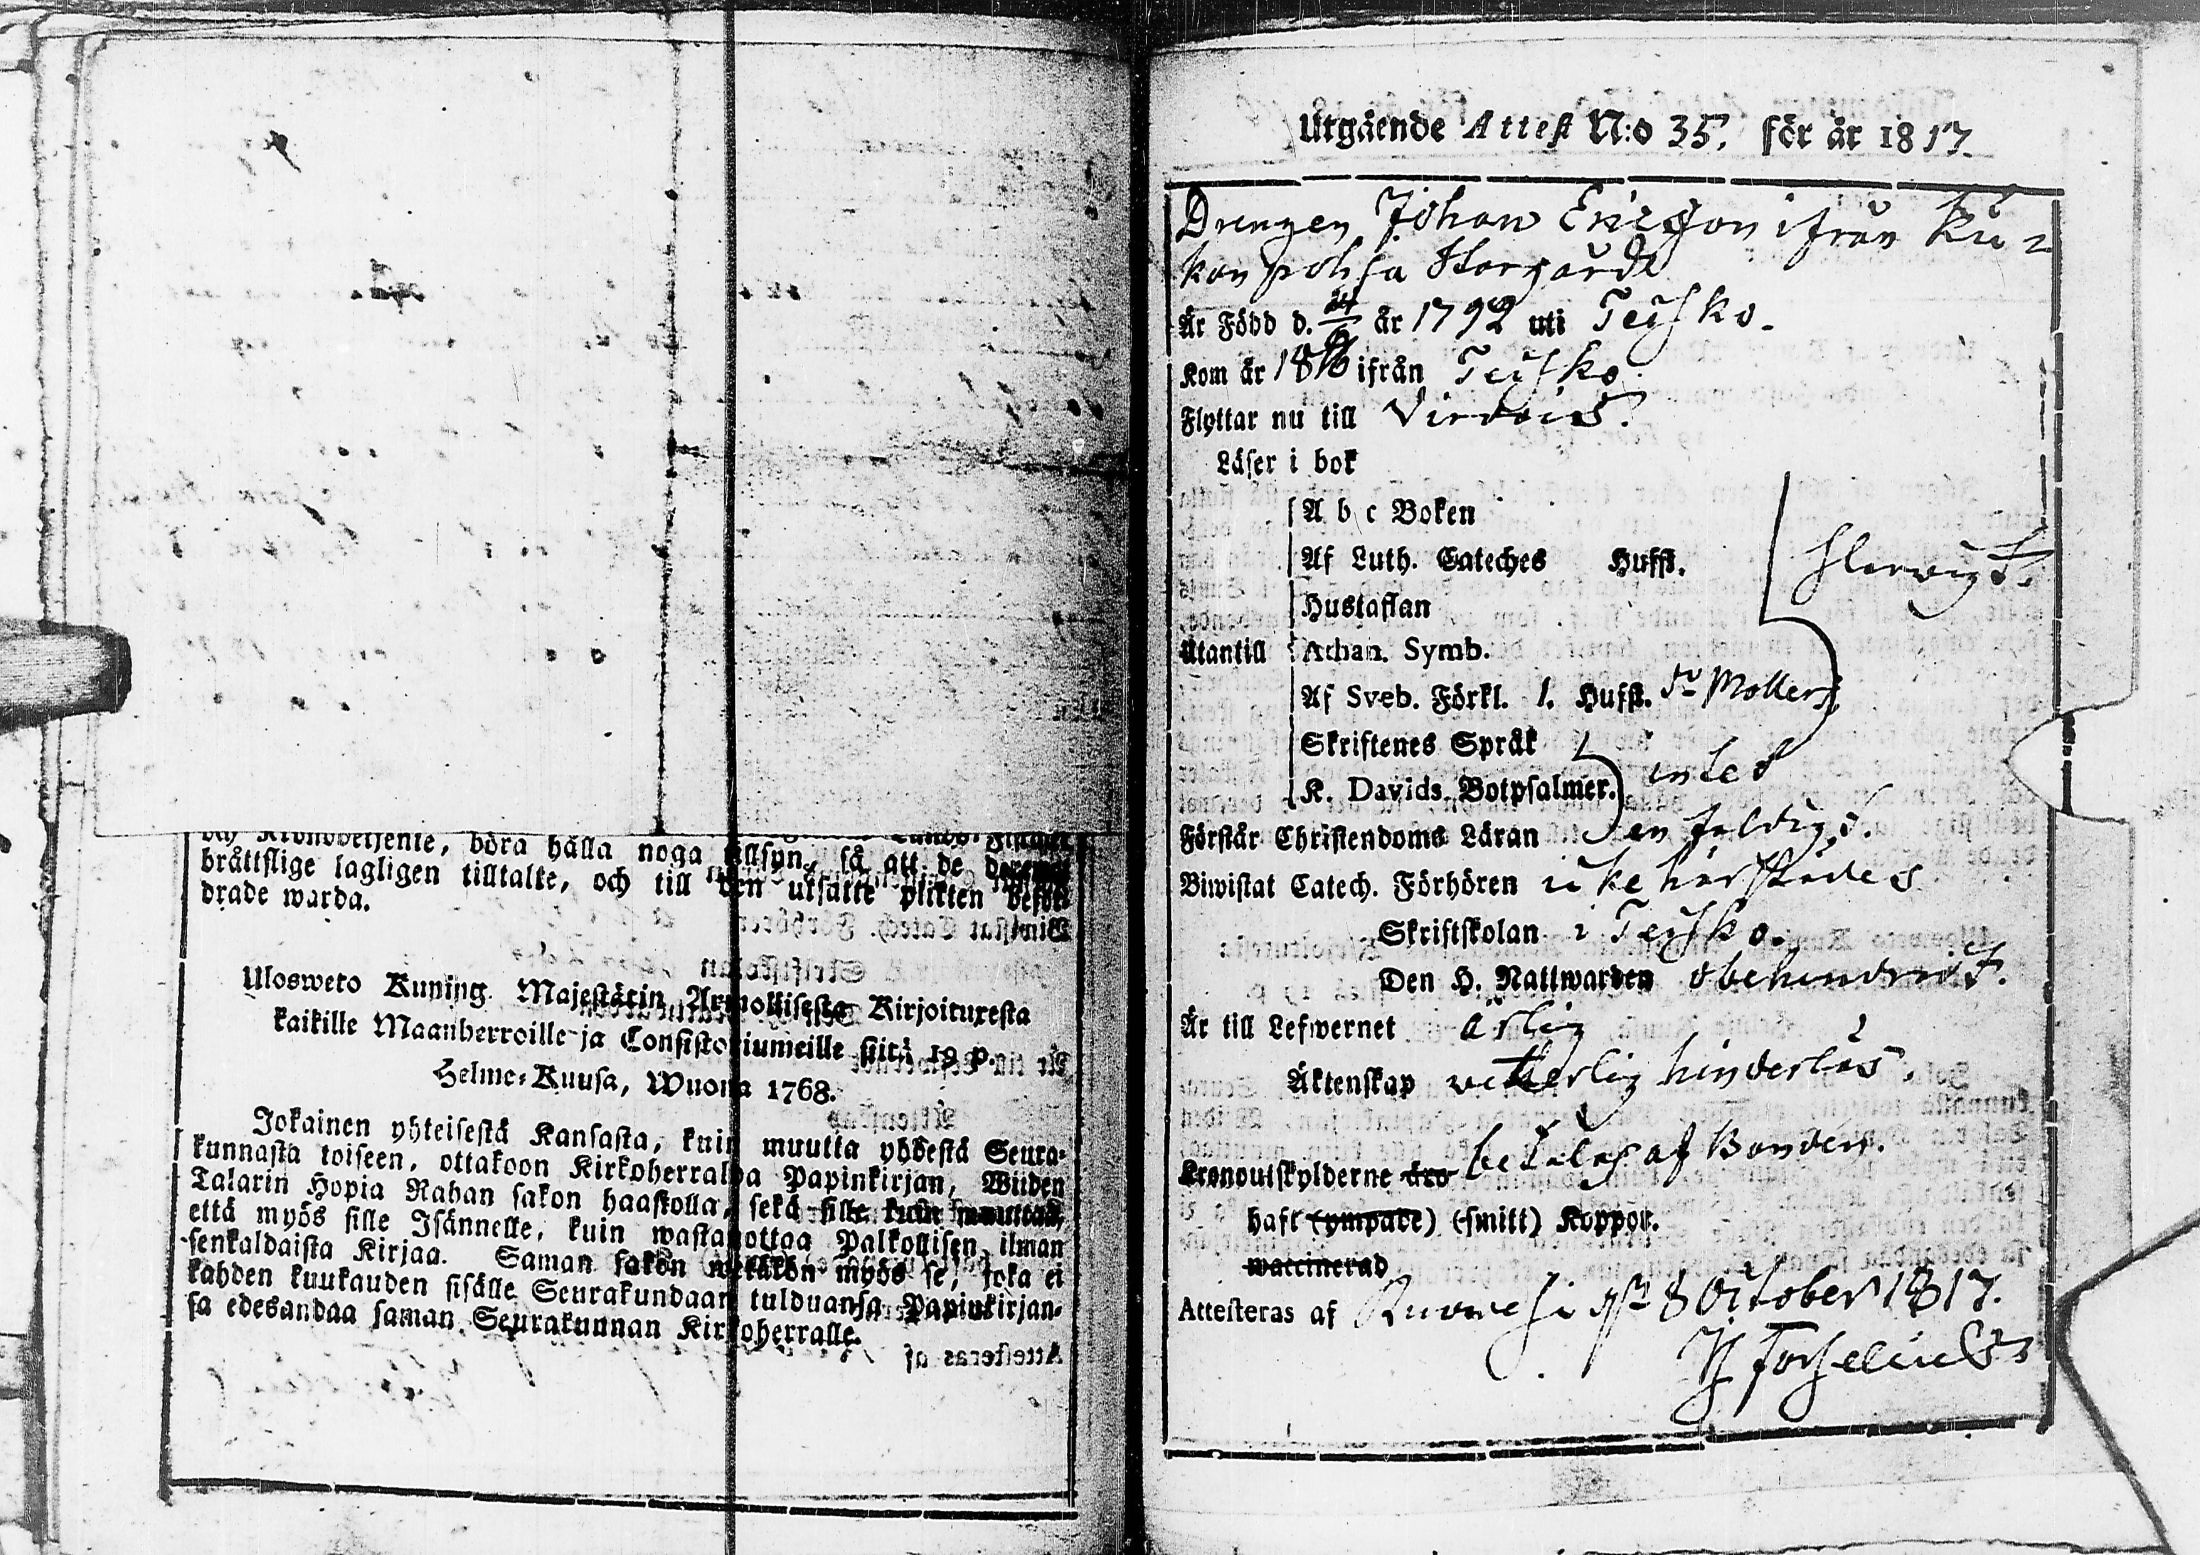 och Kronobetjente, böra hålla noga tillsyn, så att de
bråttslige lagligen tilltalte, och till den utsatte plikten beför-
drade warda.
Ulosweto Kuning. Majestätin Armollisesta Kirjoituxesta
kaikille Maanherroille ja Consistoriumeille siitä 19 p.
Helme-Kuusa, Wuonna 1768.
Jokainen yhteisestä Kansasta, kuin muutta yhdestä Seura-
kunnasta toiseen, ottakoon Kirkoherralda Papinkirjan, Wiiden
Talarin Hopia Rahan sakon haastolla, sekä sille kuin muuttaa,
että myös sille Isännelle, kuin wastanottaa Palkollisen ilman
senkaldaista Kirjaa. Saman sakon wetäkön myös se, joka ei
kahden kuukauden sisälle Seurakundaan tulduansa Papinkirjan-
sa edesandaa saman Seurakunnan Kirkoherralle.
Utgående Attest N:o 35. för år 1817.
Drengen Johan Ericsson ifrån Ku-
konpohja Storgård
Är Född d. år 1792 uti Teisko.
Kom år 1816 ifrån Teisko
Flyttar nu till Virdois.
Läser i bok
A b c Boken
Af Luth. Cateches Hufst.
Hustaflan
Utantill Athan. Symb.
Af Sveb. Förkl. 1. Hufst. Möllers
Skriftenes Språk
K. Davids Botpsalmer. intet
Förstår Christendoms Läran enfaldigt.
Biwistat Catech. Förhören icke härstädes
Skriftskolan i Teisko.
Den H. Nattwarden obehindrat.
Är till Lefwernet ärlig
Äktenskap veterlig hinderlös.
Kronoutskylderne äro betalas af Bonden.
haft (ympade) (smitt) Koppor.
waccinerad
Attesteras af Ruovesi Pst 8 October 1817.